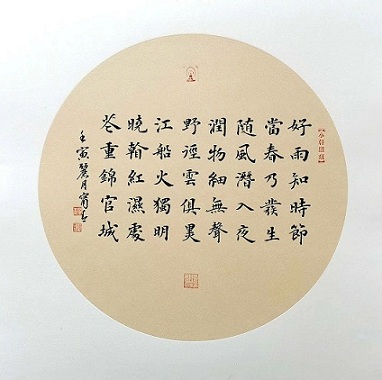 好雨知時節
當春乃發生
随風潛入夜
潤物細無聲
野逕雲俱黑
江船火獨明
曉看紅濕處
花重錦官城
壬寅麗月